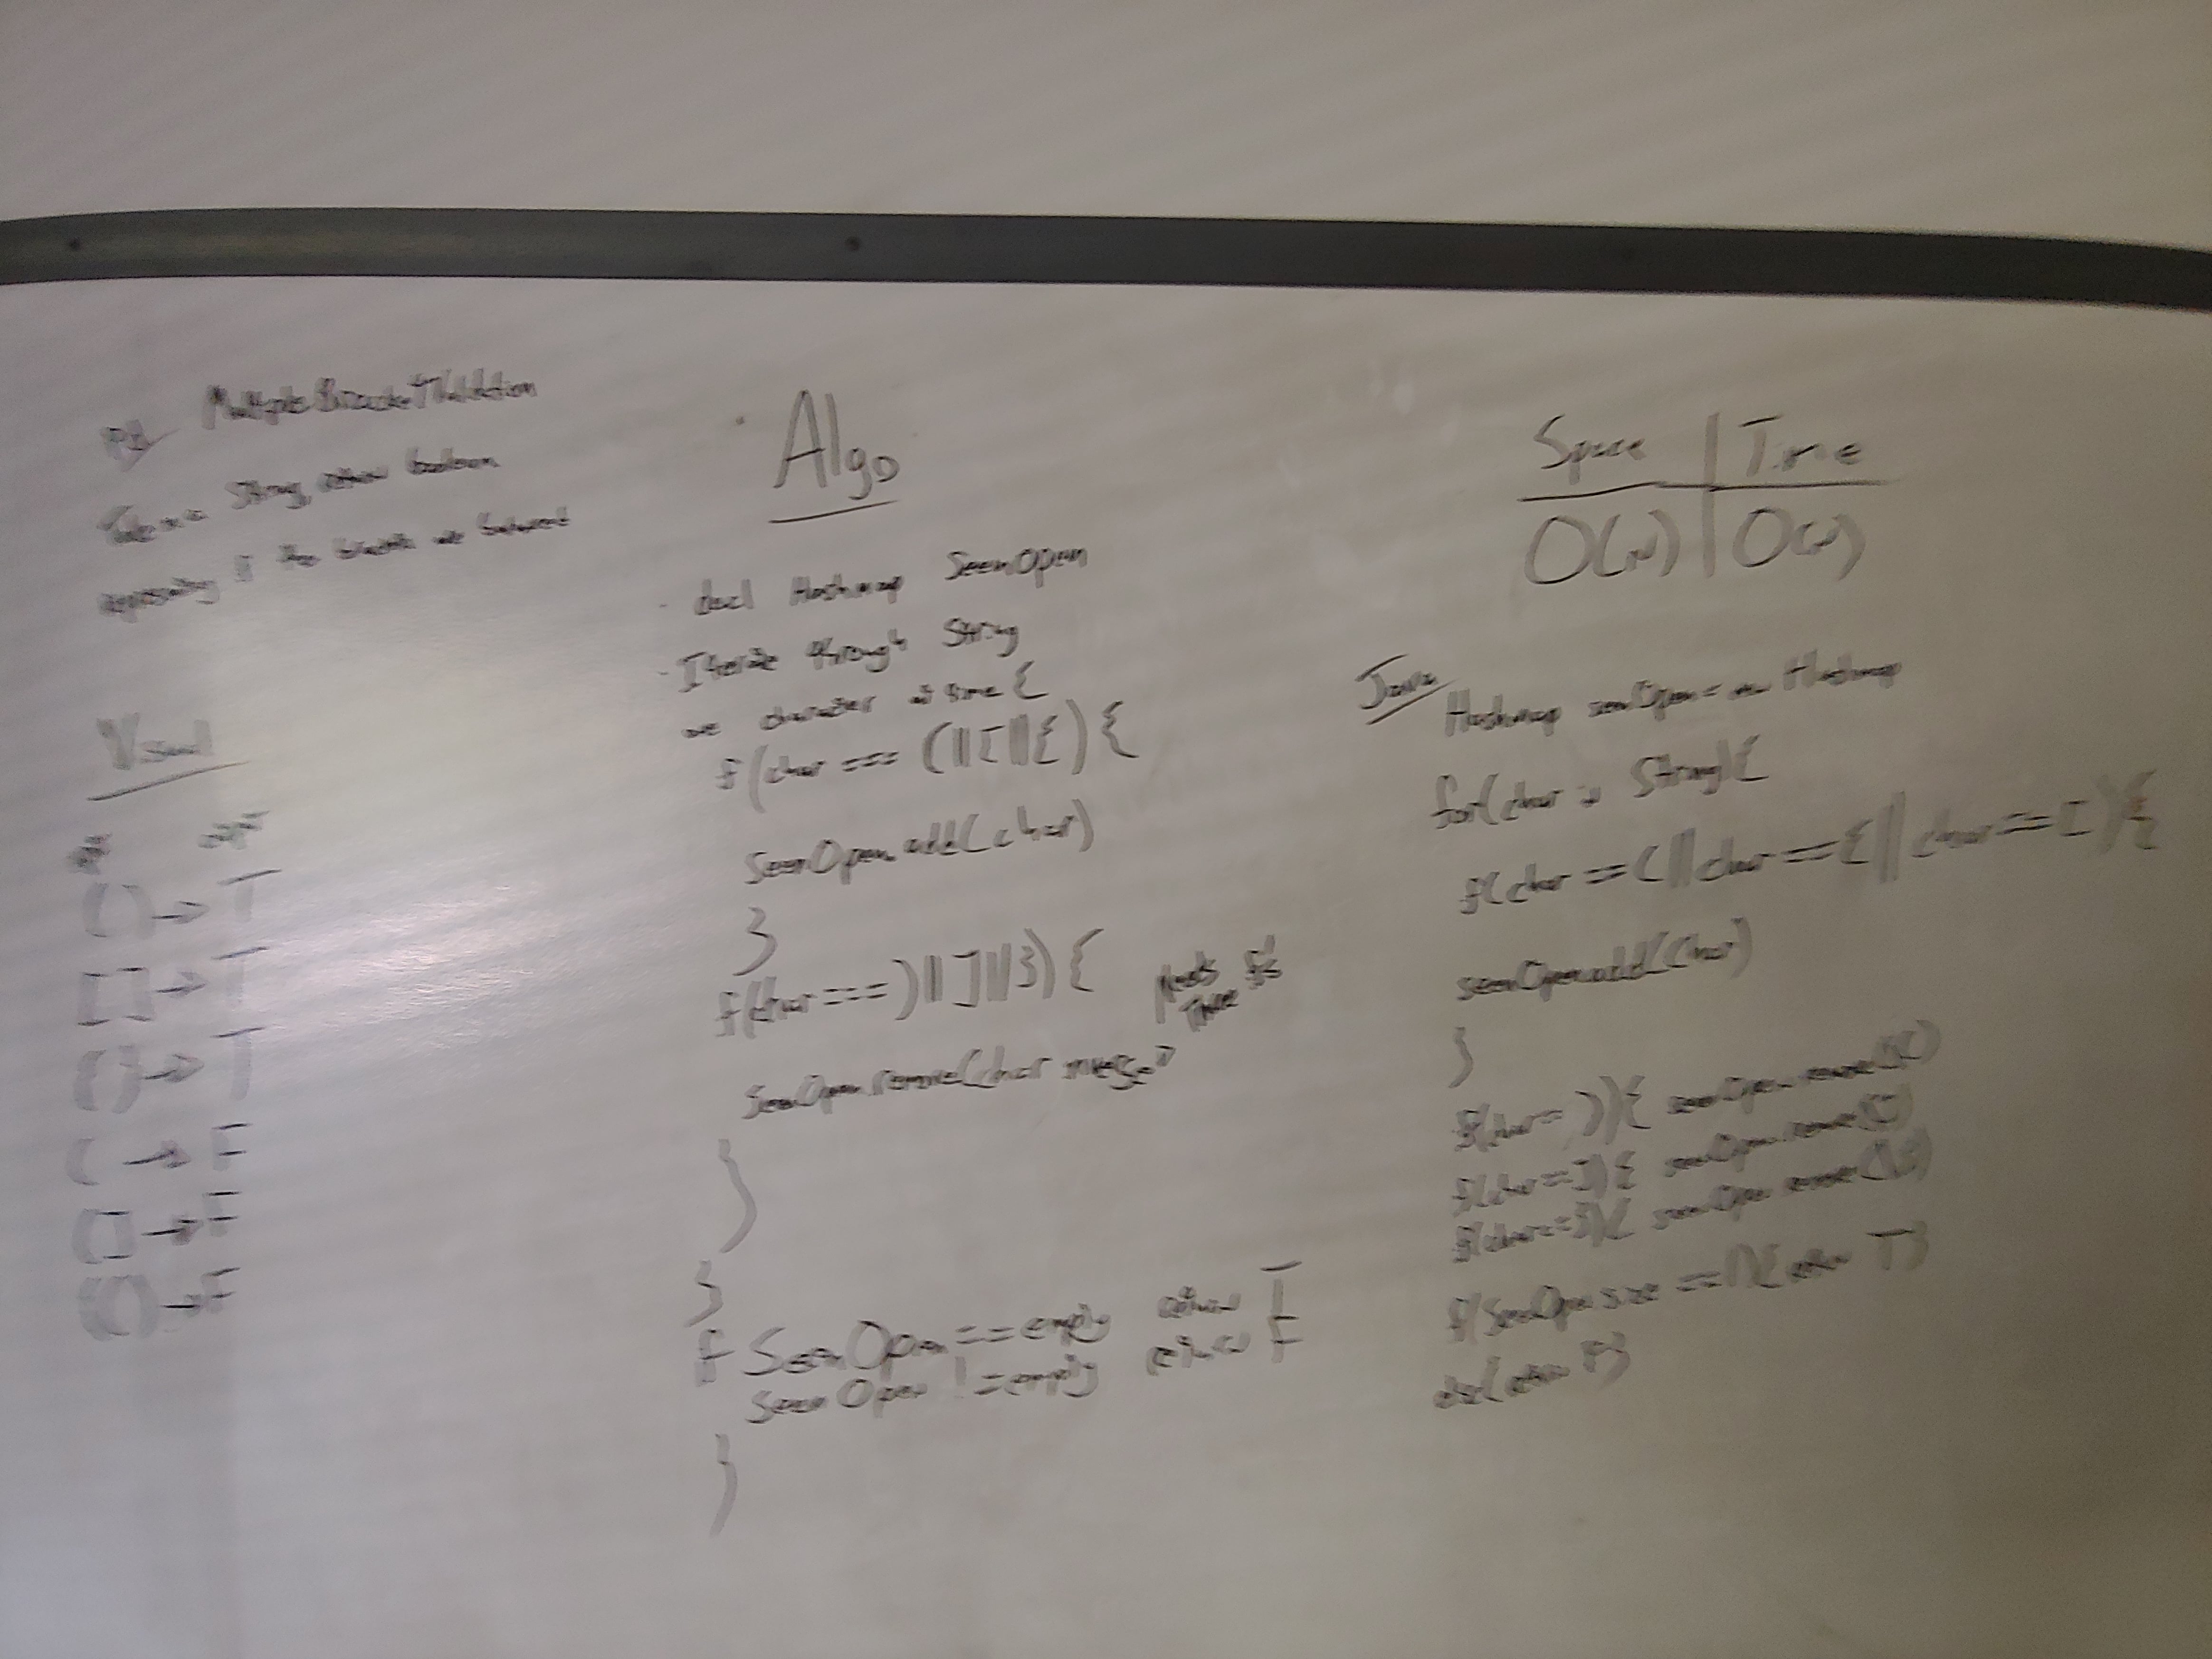 PD MultipleBracketValidation
Take in a String, return boolean
representing if the brackets are balanced
Visual
input output
() → T
[] → T
{} → T
( → F
→ F
→ F
Algo
- decl Hashmap SeenOpen
- Iterate through String
one character at time {
if (char === (||[||{) {
SeenOpen.add(char)
}
if(char === )||]||}) {
Needs Three ifs
SeenOpen.remove(char inverse)
}
}
if SeenOpen == empty return T
SeenOpen != empty return F
}
Space | Time
O(N) | O(N)
Java
Hashmap seenOpen = new Hashmap
for(char in String){
if(char == ( || char == { || char == [){
seenOpen.add(char)
}
if(char = )){ seenOpen.remove
if(char == ]){ seenOpen.remove
if(char == }){ seenOpen remove
if(SeenOpen size == return T}
else{return F}